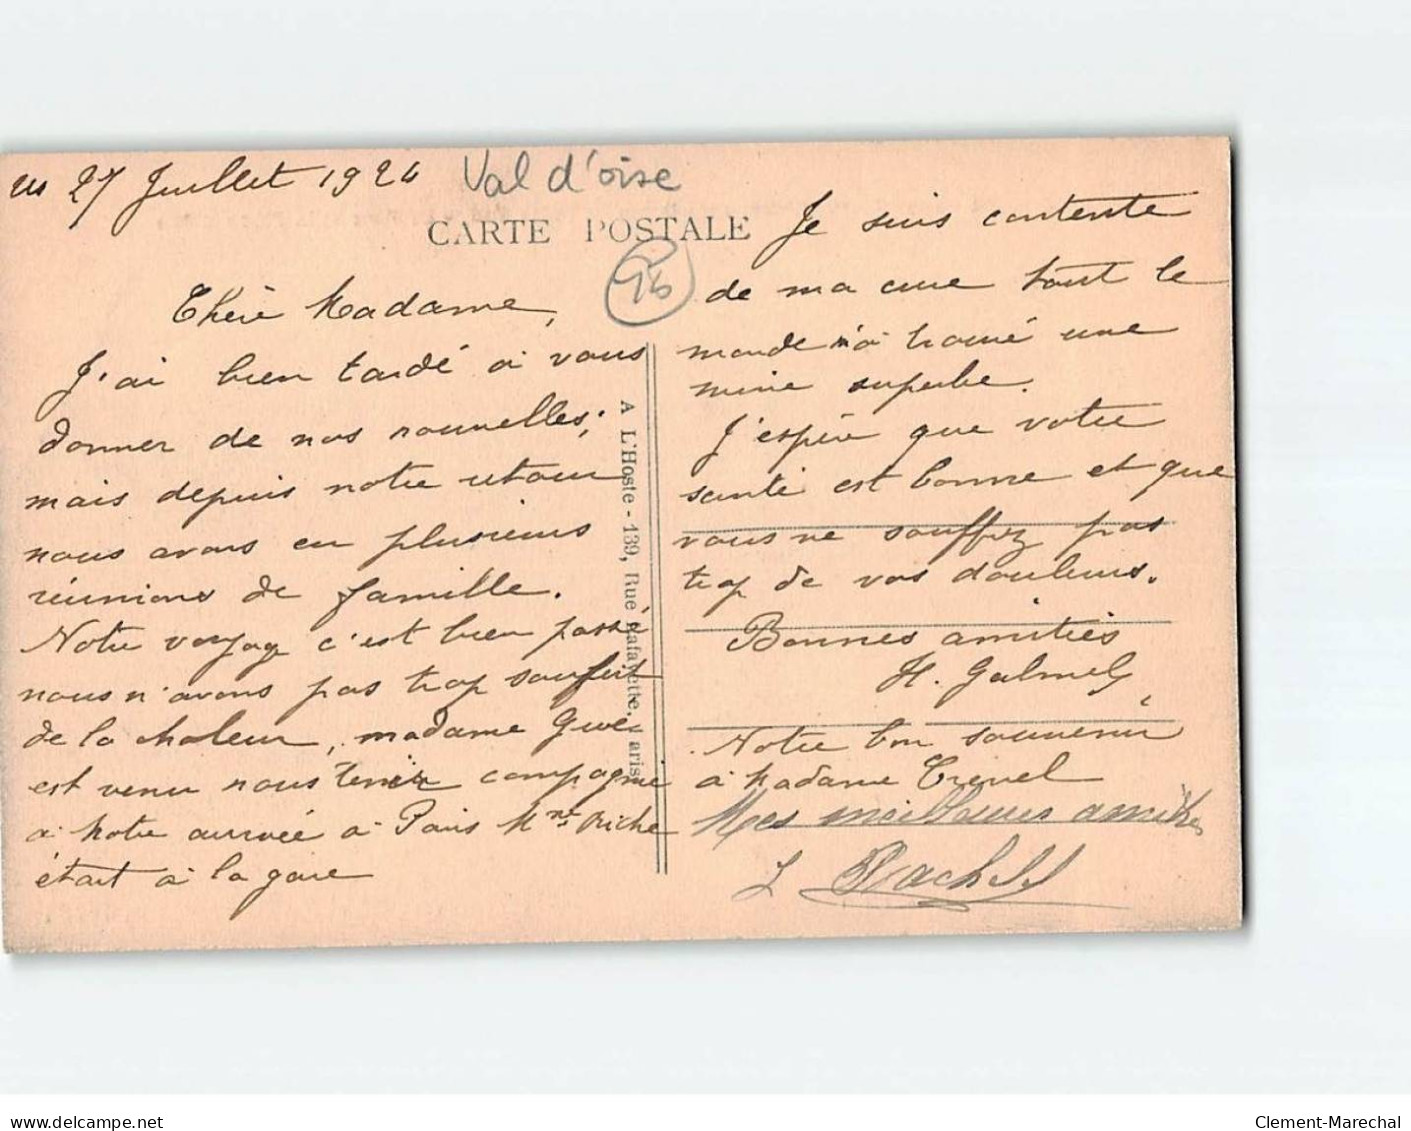 27 Juillet 1924
Val d'oise
CARTE POSTALE
95
Chère Madame,
J'ai bien tardé à vous
donner de nos nouvelles;
mais depuis notre retour
nous avons eu plusieurs
réunions de famille.
Notre voyage c'est bien passé
nous n'avons pas trop souffert
de la chaleur, madame
est venu nous tenir compagnie
à notre arrivée à Paris Mme Riche
était à la gare
A L'Hoste - 139, Rue Lafayette, Paris
Je suis contente
de ma cure tout le
monde m'a trouvé une
mine superbe.
J'espère que votre
santé est bonne et que
vous ne souffrez pas
trop de vos douleurs.
Bonnes amitiés
H.
Notre bon souvenir
à Madame
Mes meilleures amitiés
Rachel
delcampe.net
Clement-Marechal